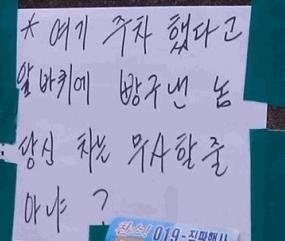 * 여기 주차 했다고
앞 바퀴에 빵구낸 놈
당신 차는 무사할 줄
아냐 ?
019-직파행사